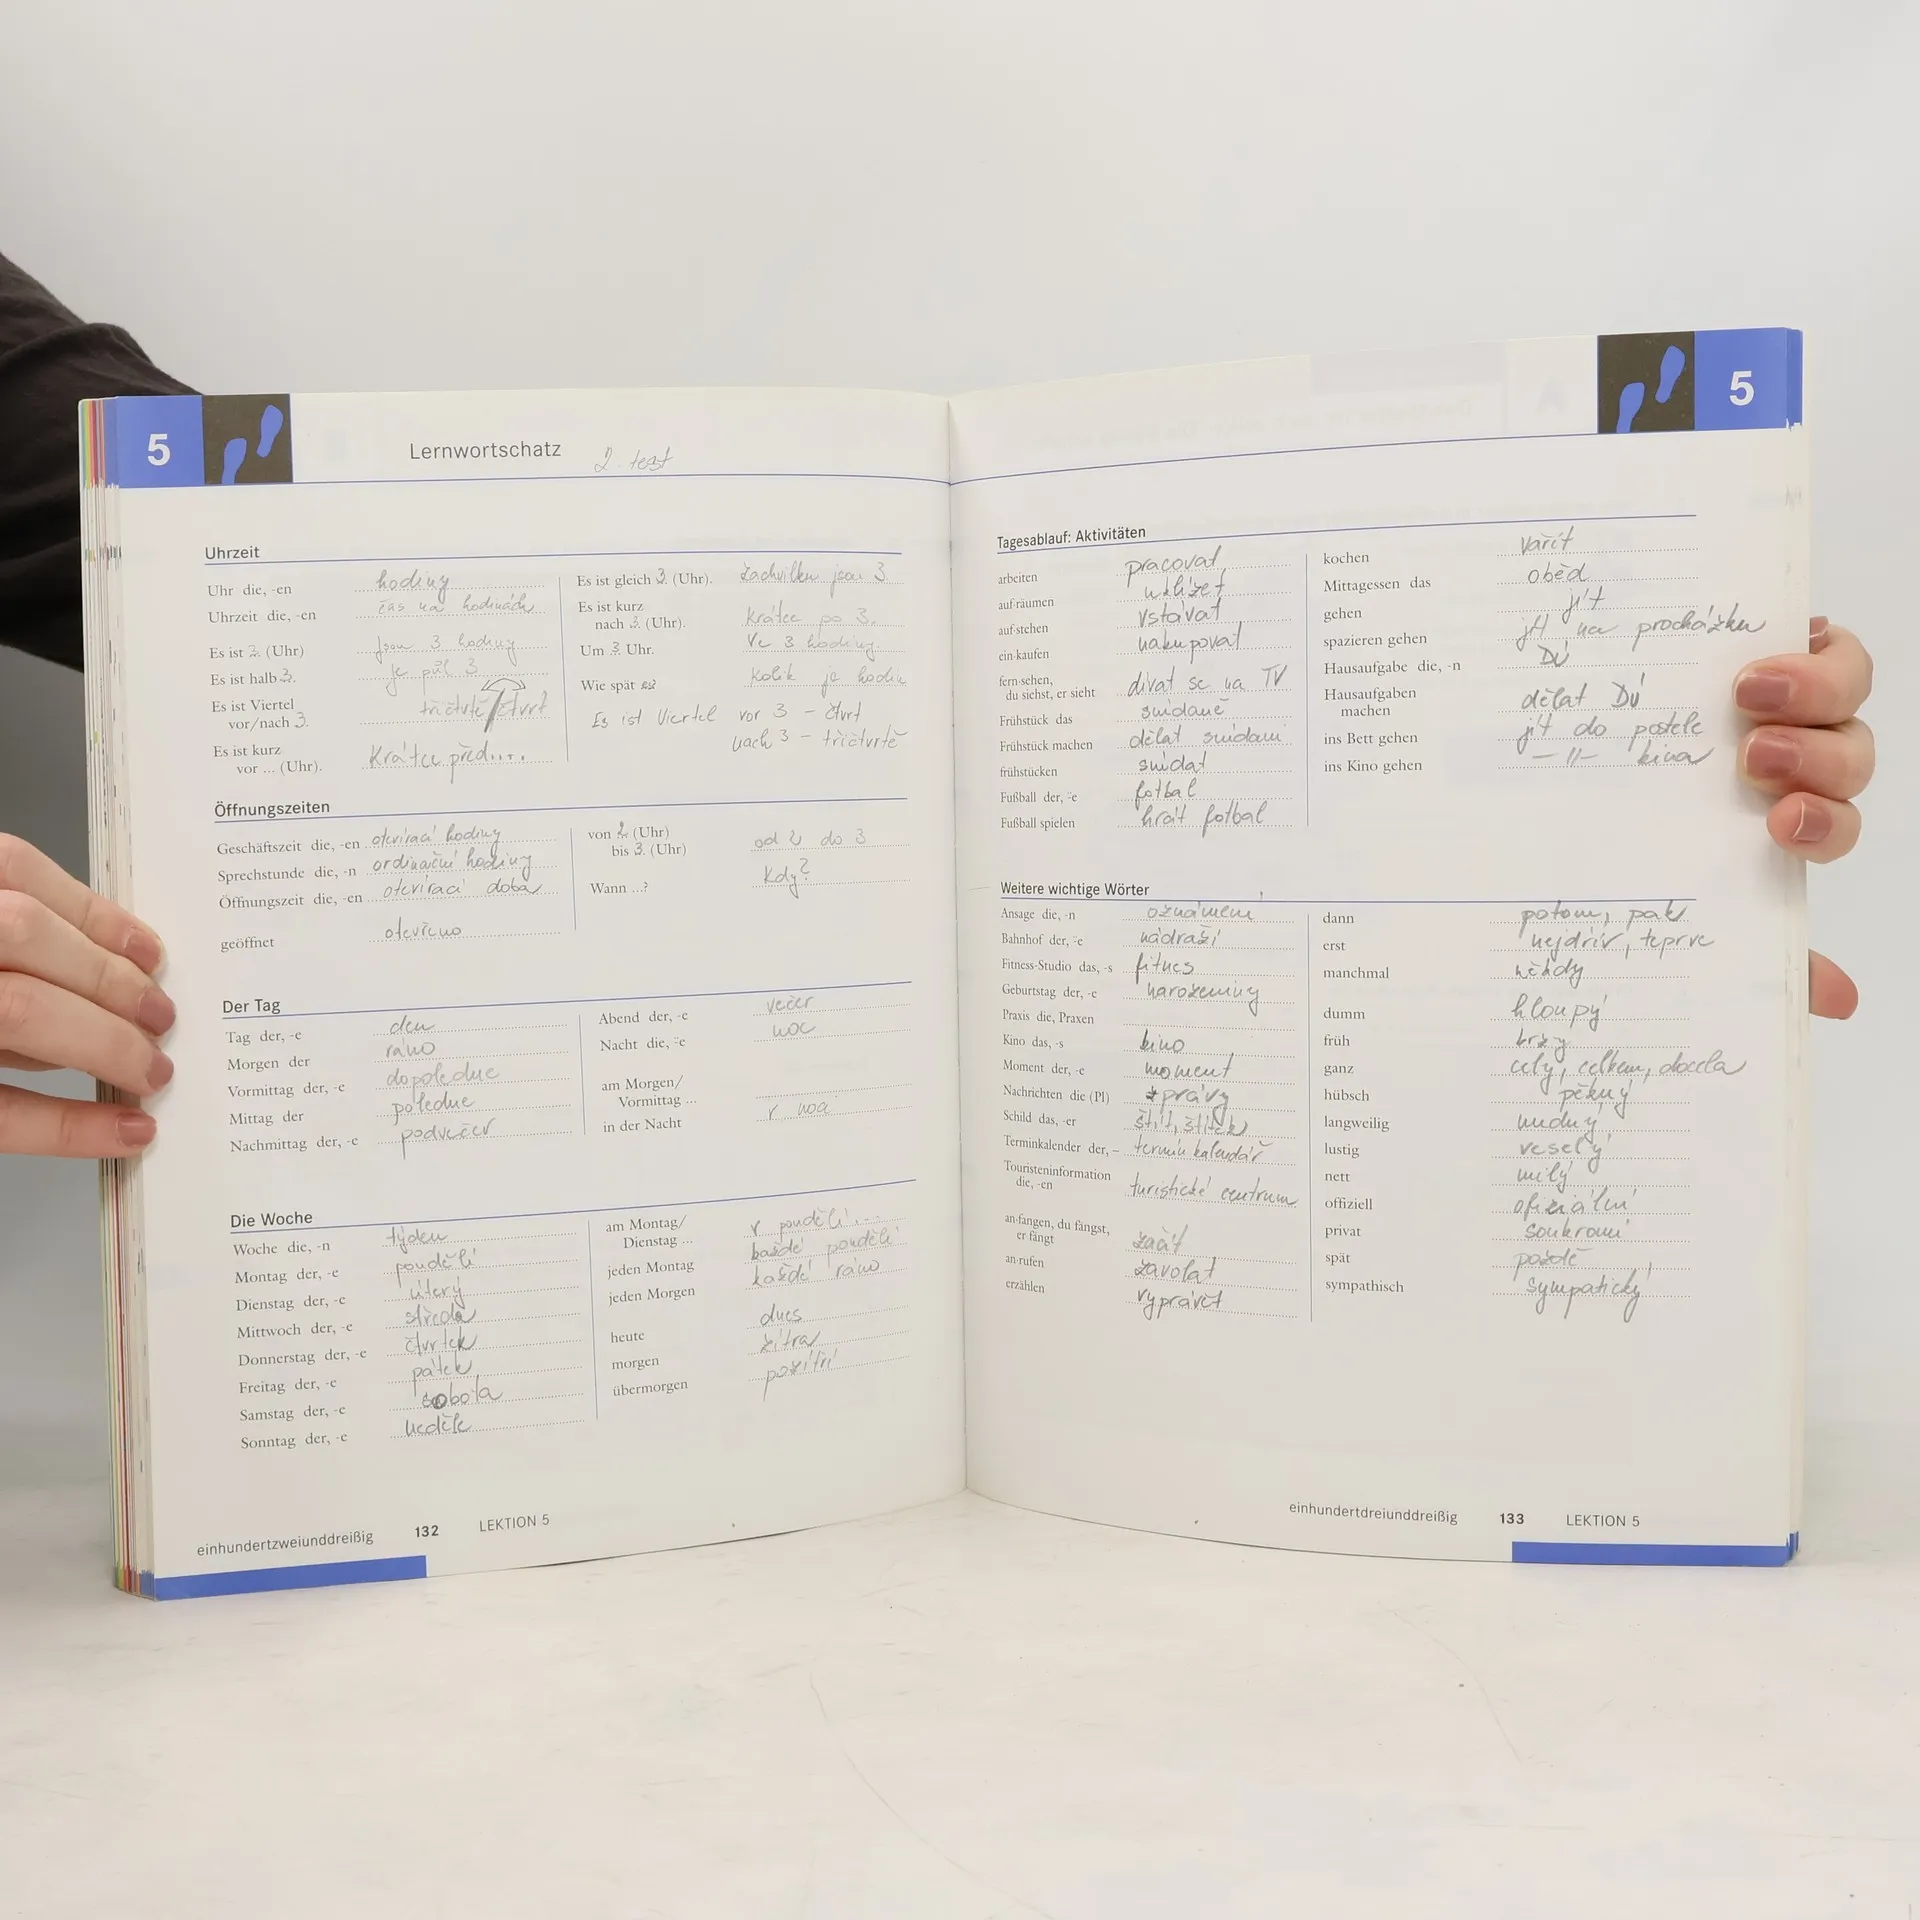 5
Lernwortschatz 2. test
Uhrzeit
Uhr die, -en hodiny
Uhrzeit die, -en čas na hodinách
Es ist 3. (Uhr) jsou 3 hodiny
Es ist halb 3. je půl 3
Es ist Viertel
vor/nach 3. tričtvrtě/čtvrt
Es ist kurz
vor ... (Uhr). Krátce před....
Es ist gleich 3. (Uhr). Zachvilku jsou 3
Es ist kurz
nach 3. (Uhr). Krátce po 3.
Um 3. Uhr. Ve 3 hodiny.
Wie spät es? Kolik je hodin
Es ist Viertel vor 3 - čtvrt
nach 3 - tričtvrtě
Öffnungszeiten
Geschäftszeit die, -en otevírací hodiny
Sprechstunde die, -n ordinační hodiny
Öffnungszeit die, -en otevírací doba
geöffnet otevřeno
von 2 (Uhr)
bis 3. (Uhr) od 2 do 3
Wann ...? Kdy?
Der Tag
Tag der, -e den
Morgen der ráno
Vormittag der, -e dopoledne
Mittag der poledne
Nachmittag der, -e podvečer
Abend der, -e večer
Nacht die, ¨e noc
am Morgen/
Vormittag ...
in der Nacht v noci
Die Woche
Woche die, -n týden
Montag der, -e pondělí
Dienstag der, -e úterý
Mittwoch der, -e středa
Donnerstag der, -e čtvrtek
Freitag der, -e pátek
Samstag der, -e sobota
Sonntag der, -e neděle
am Montag/
Dienstag ... v pondělí...
jeden Montag každé pondělí
jeden Morgen každé ráno
heute dnes
morgen zítra
übermorgen pozítří
einhundertzweiunddreißig 132 LEKTION 5
5
Tagesablauf: Aktivitäten
arbeiten pracovat
auf·räumen uklízet
auf·stehen vstávat
ein·kaufen nakupovat
fern·sehen,
du siehst, er sieht dívat se na TV
Frühstück das snídaně
Frühstück machen dělat snídani
frühstücken snídat
Fußball der, ¨e fotbal
Fußball spielen hrát fotbal
kochen vařit
Mittagessen das oběd
gehen jít
spazieren gehen jít na procházku
Hausaufgabe die, -n DÚ
Hausaufgaben
machen dělat DÚ
ins Bett gehen jít do postele
ins Kino gehen -||- kina
Weitere wichtige Wörter
Ansage die, -n oznámení
Bahnhof der, ¨e nádraží
Fitness-Studio das, -s fitnes
Geburtstag der, -e narozeniny
Praxis die, Praxen
Kino das, -s kino
Moment der, -e moment
Nachrichten die (Pl) zprávy
Schild das, -er štít, štítek
Terminkalender der, – termín kalendář
Touristeninformation
die, -en turistické centrum
an·fangen, du fängst,
er fängt začít
an·rufen zavolat
erzählen vyprávět
dann potom, pak
erst nejdřív, teprve
manchmal někdy
dumm hloupý
früh brzy
ganz celý, celkem, docela
hübsch pěkný
langweilig nudný
lustig veselý
nett milý
offiziell oficiální
privat soukromí
spät pozdě
sympathisch sympatický
einhundertdreiunddreißig 133 LEKTION 5